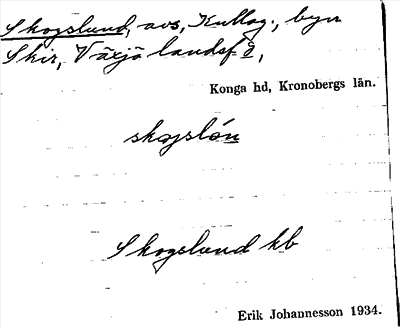 Skogslund, avs, Kullag., byn
Skir, Växjö landsf.,
Konga hd, Kronobergs län.
skogslón
Skogslund kb
Erik Johannesson 1934.